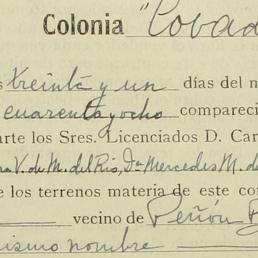 Colonia "Covad
s treinta y un días del m
cuarenta y ocho comparecie
arte los Sres. Licenciados D. Car
V. de M. del Rio, Da Mercedes M. de
e los terrenos materia de este co
vecino de Peñón B
mismo nombre